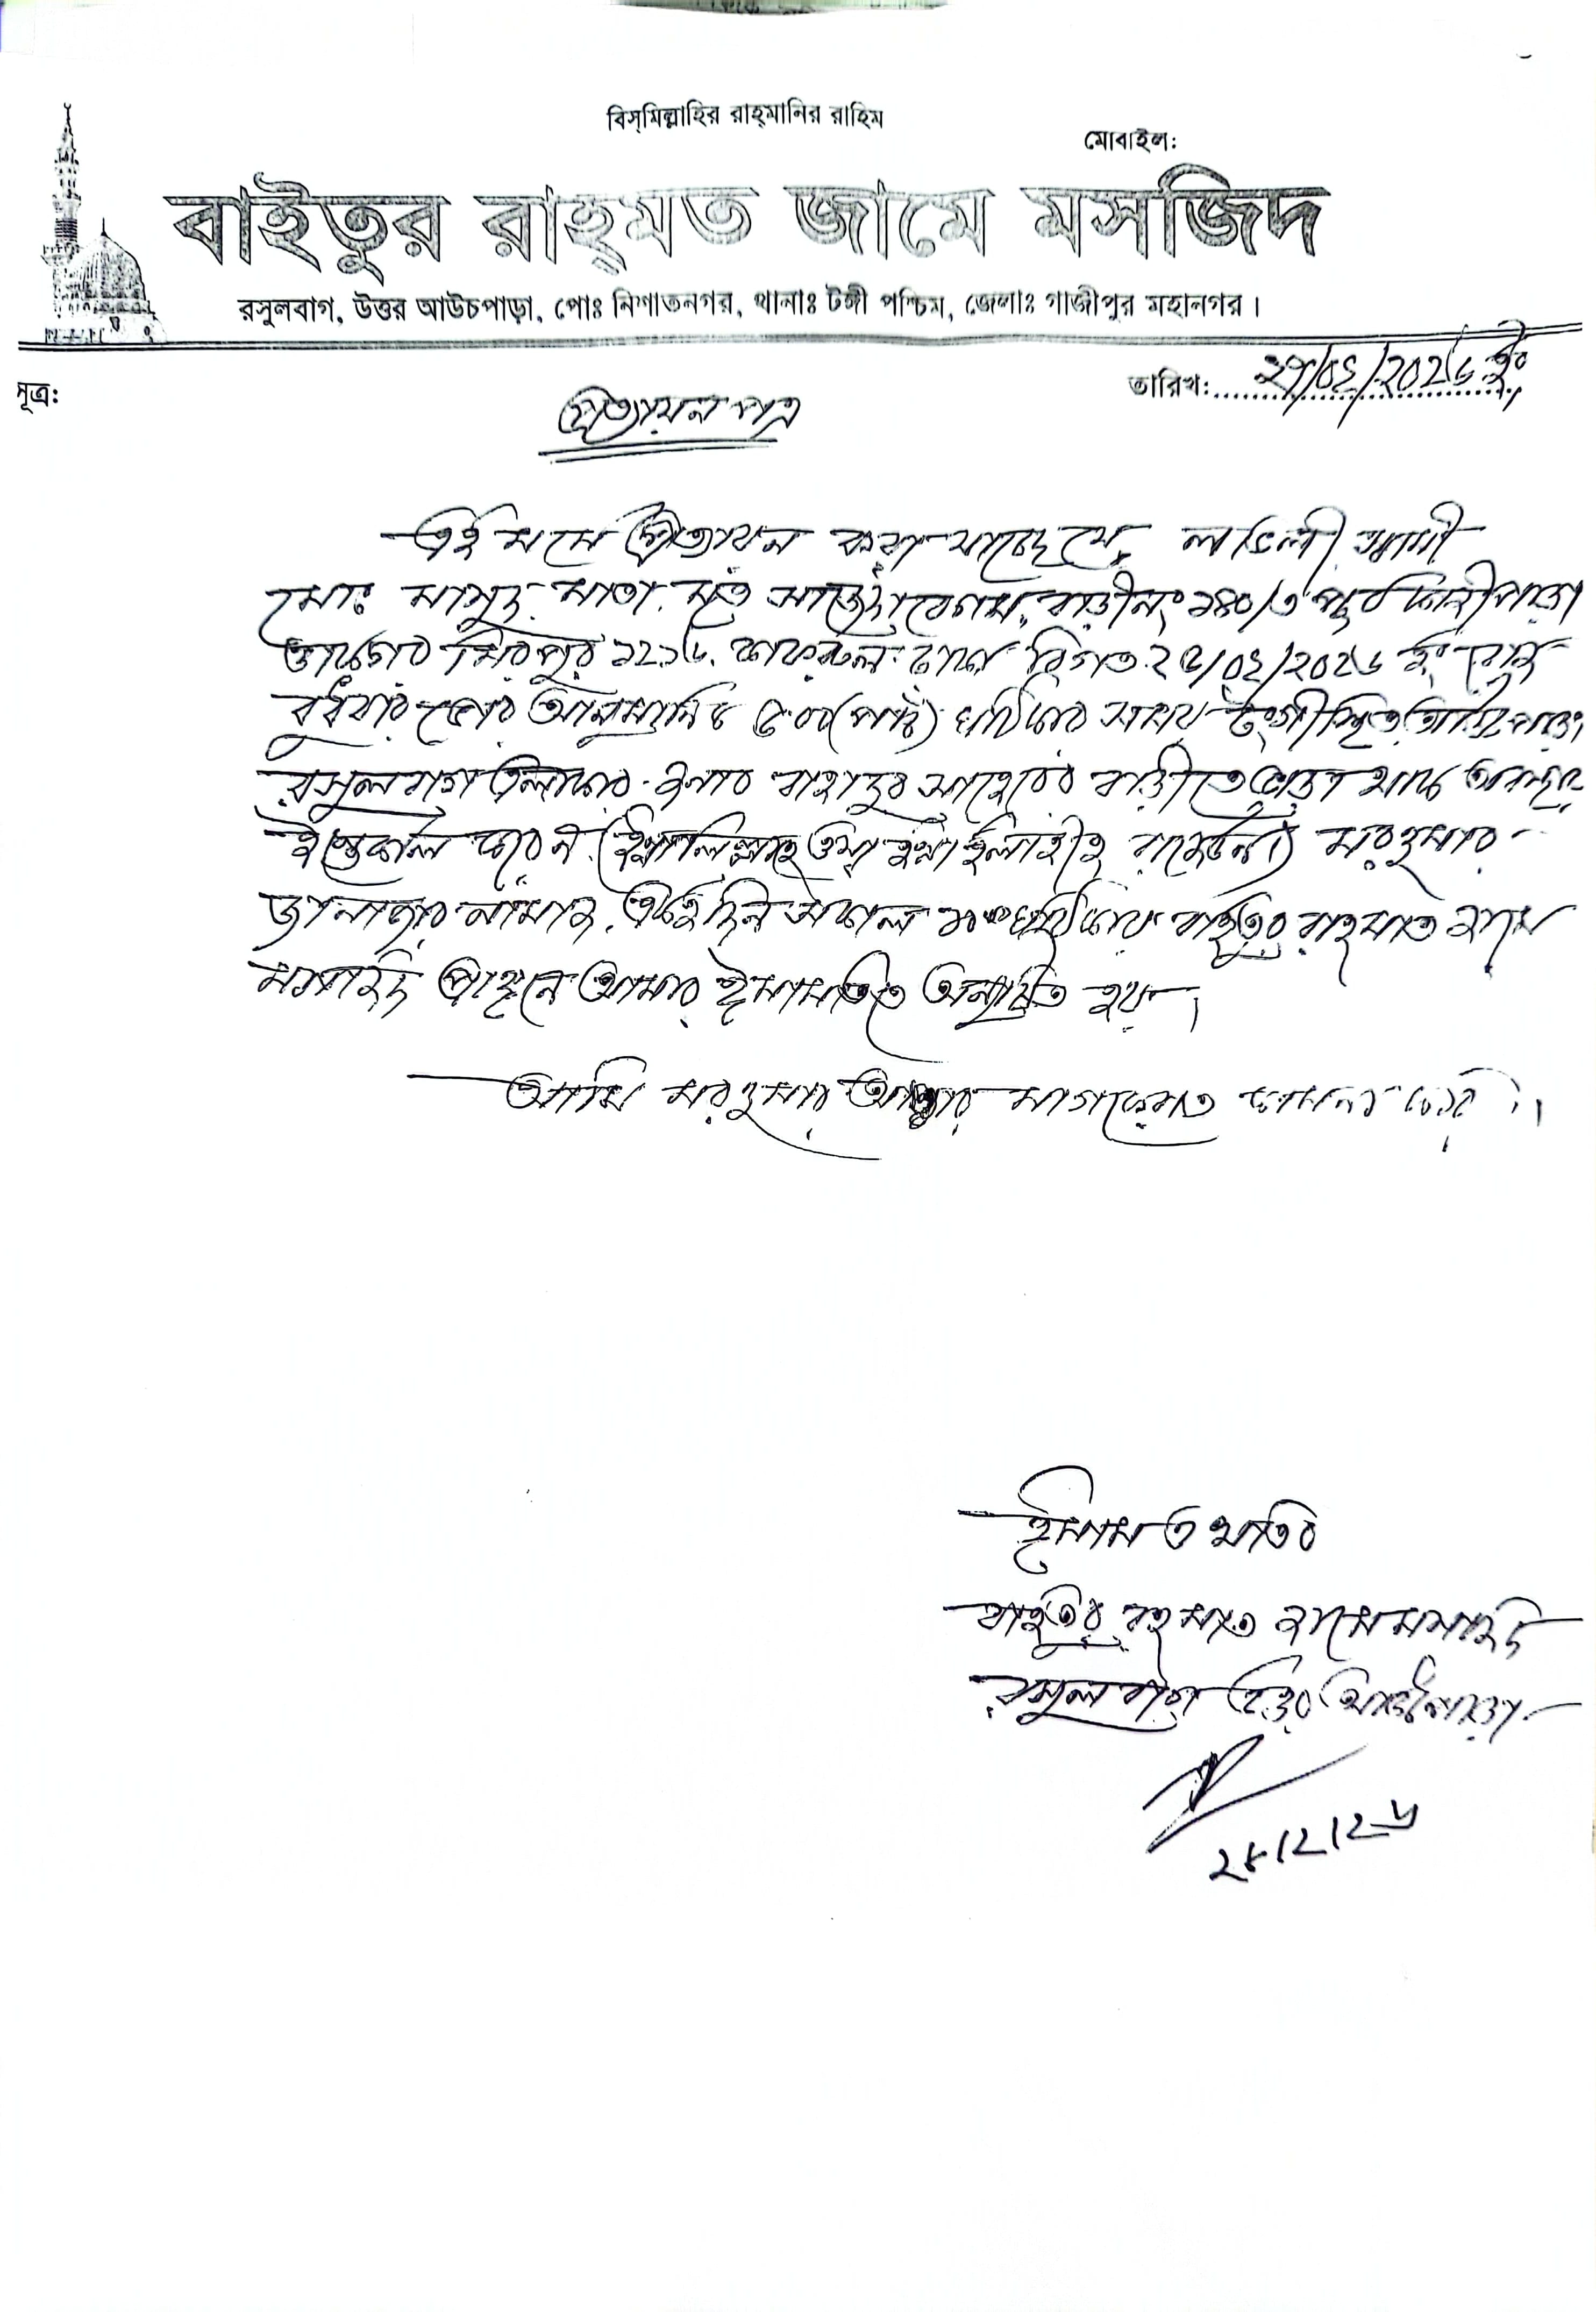 বিস্‌মিল্লাহির রাহ্‌মানির রাহিম
মোবাইল:
বাইতুর রাহ্‌মত জামে মসজিদ
রসুলবাগ, উত্তর আউচপাড়া, পোঃ নিশাতনগর, থানাঃ টঙ্গী পশ্চিম, জেলাঃ গাজীপুর মহানগর।
সূত্র:
তারিখ: /০২/২০২৬ ইং
প্রত্যায়ন পত্র
এই মর্মে প্রত্যায়ন করা যাচ্ছে যে, লাভলী স্বামী
মোঃ মাসুদ, মাতা মৃত বেগম, বাড়ী নং ১৪০/৩ পূর্ব
মিরপুর ১২১৬, কাফরুল ঢাকা বিগত ২৫/০২/২০২৬ ইং রোজ
বুধবার ভোর আনুমানিক ৫.০০ (পাঁচ) ঘটিকার সময় টংগীস্থিত আউচপাড়া
রসুলবাগ এলাকার জনাব বাহাদুর সাহেবের বাড়ীতে ভাড়া থাকা অবস্থায়
ইন্তেকাল করেন (ইন্নালিল্লাহে ওয়া ইন্না ইলাইহি রাজেউন)। মরহুমার
জানাজার নামাজ একই দিন সকাল ১০ ঘটিকায় বাইতুর রাহমাত জামে
মসজিদ প্রাঙ্গনে আমার ইমামতিতে অনুষ্ঠিত হয়।
আমি মরহুমার আত্মার মাগফেরাত কামনা করি।।
ইমাম ও খতিব
বাইতুর রহমাত জামে মসজিদ
রসুল বাগ উত্তর আউচপাড়া
২৮/২/২৬